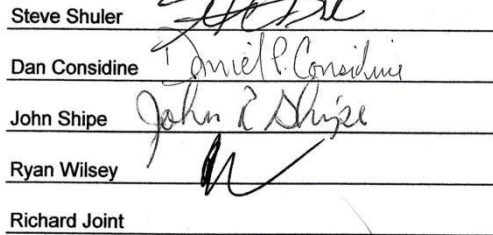 Steve Shuler
Dan Considine Daniel P. Considine
John Shipe John R Shipe
Ryan Wilsey
Richard Joint